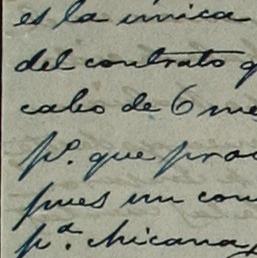 es la única
del contrato q
cabo de 6 me
pº. que proc
pues un con
pª. chicana